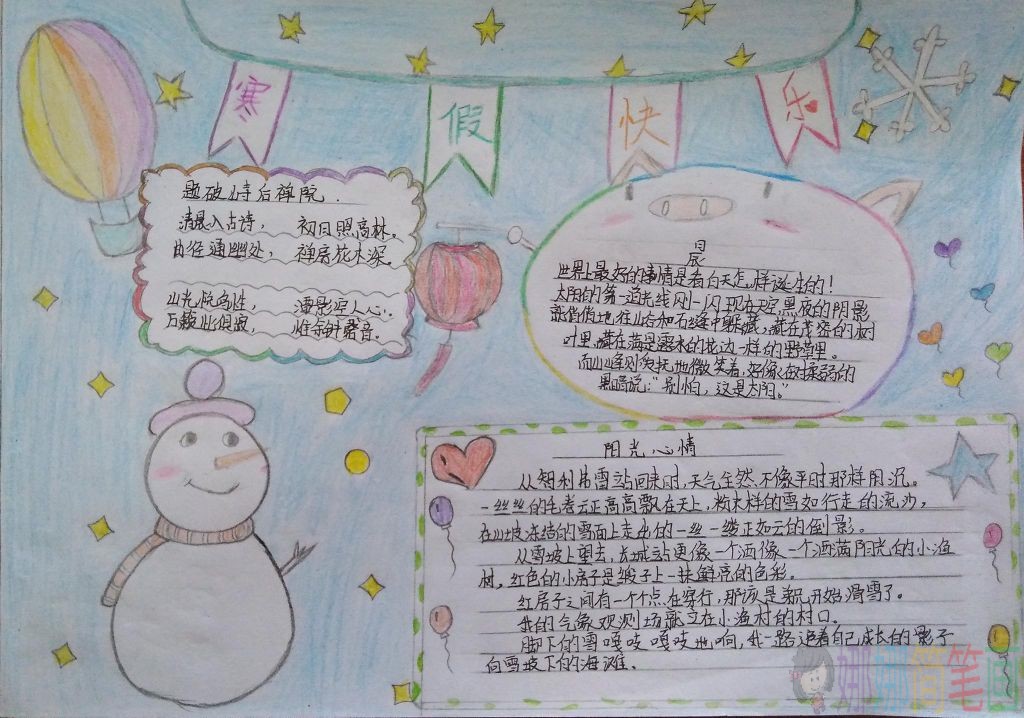 寒假快乐
题破山寺后禅院.
清晨入古诗， 初日照高林。
曲径通幽处， 禅房花木深。
山光悦鸟性， 潭影空人心.
万籁此俱寂， 惟余钟磬音.
晨
世界上最好的事情是看白天怎样诞生的！
太阳的第一道光线闪一闪现在天空,黑夜的阴影
就悄悄地往山谷和石缝中躲藏，藏在茂密的树
叶里,藏在满是露水的花边一样的野草里。
而山峰则安抚地微笑着,好像在对柔弱的
黑暗说:“别怕，这是太阳。”
阳光心情
从智利弗雪站回来时,天气全然不像平时那样阴沉。
一丝丝的毛卷云正高高飘在天上，粉末样的雪如行走的流沙，
在山坡冻结的雪面上走出的一丝一缕正如云的倒影。
从雪坡上望去,长城站更像一个洒像一个洒满阳光的小渔
村。红色的小房子是缎子上一抹鲜亮的色彩。
红房子之间有一个个点在穿行，那该是队员开始滑雪了。
我的气象观测场就立在小渔村的村口。
脚下的雪嘎吱嘎吱地响,我一路追着自己成长的影子
向雪坡下的海滩。
娜娜简笔画